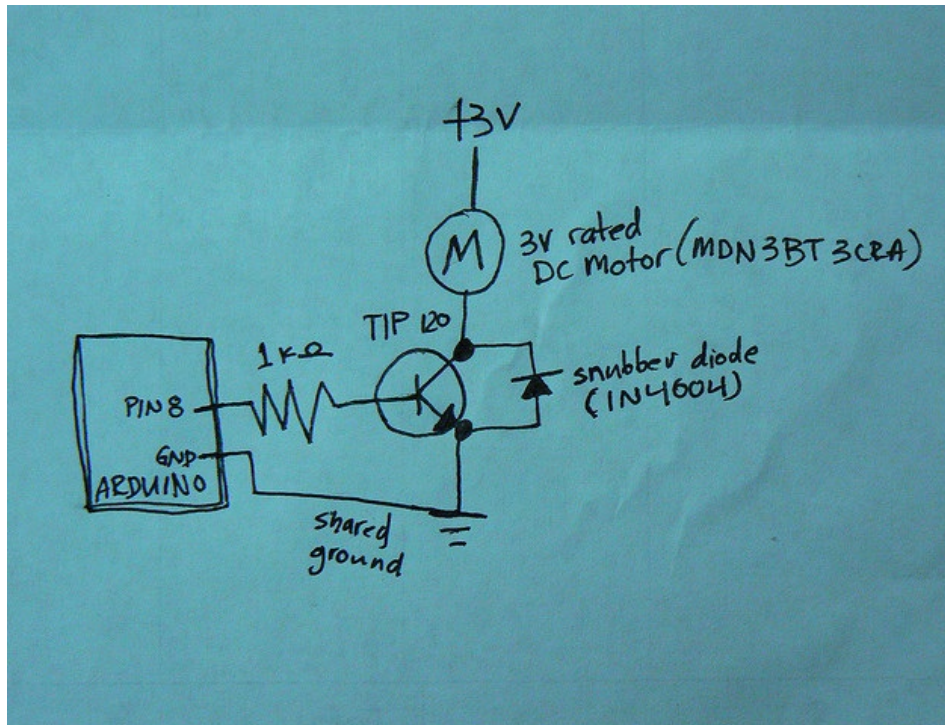 +3V
M
3V rated
DC Motor (MDN3BT3CRA)
TIP 120
1KΩ
snubber diode
(1N4004)
PIN 8
GND
ARDUINO
shared
ground